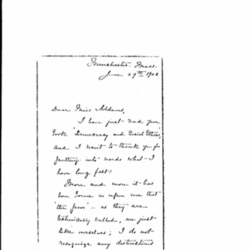 Manchester, Mass.
June 29th 1902
Dear Miss Addams,
I have just read your
book "Democracy and Social Ethics",
and I want to thank you for
putting into words what I
have long felt!
More and more it has
been borne in upon me that
"the poor" - as they are
technically called, are just
like ourselves; I do not
recognize any distinctions